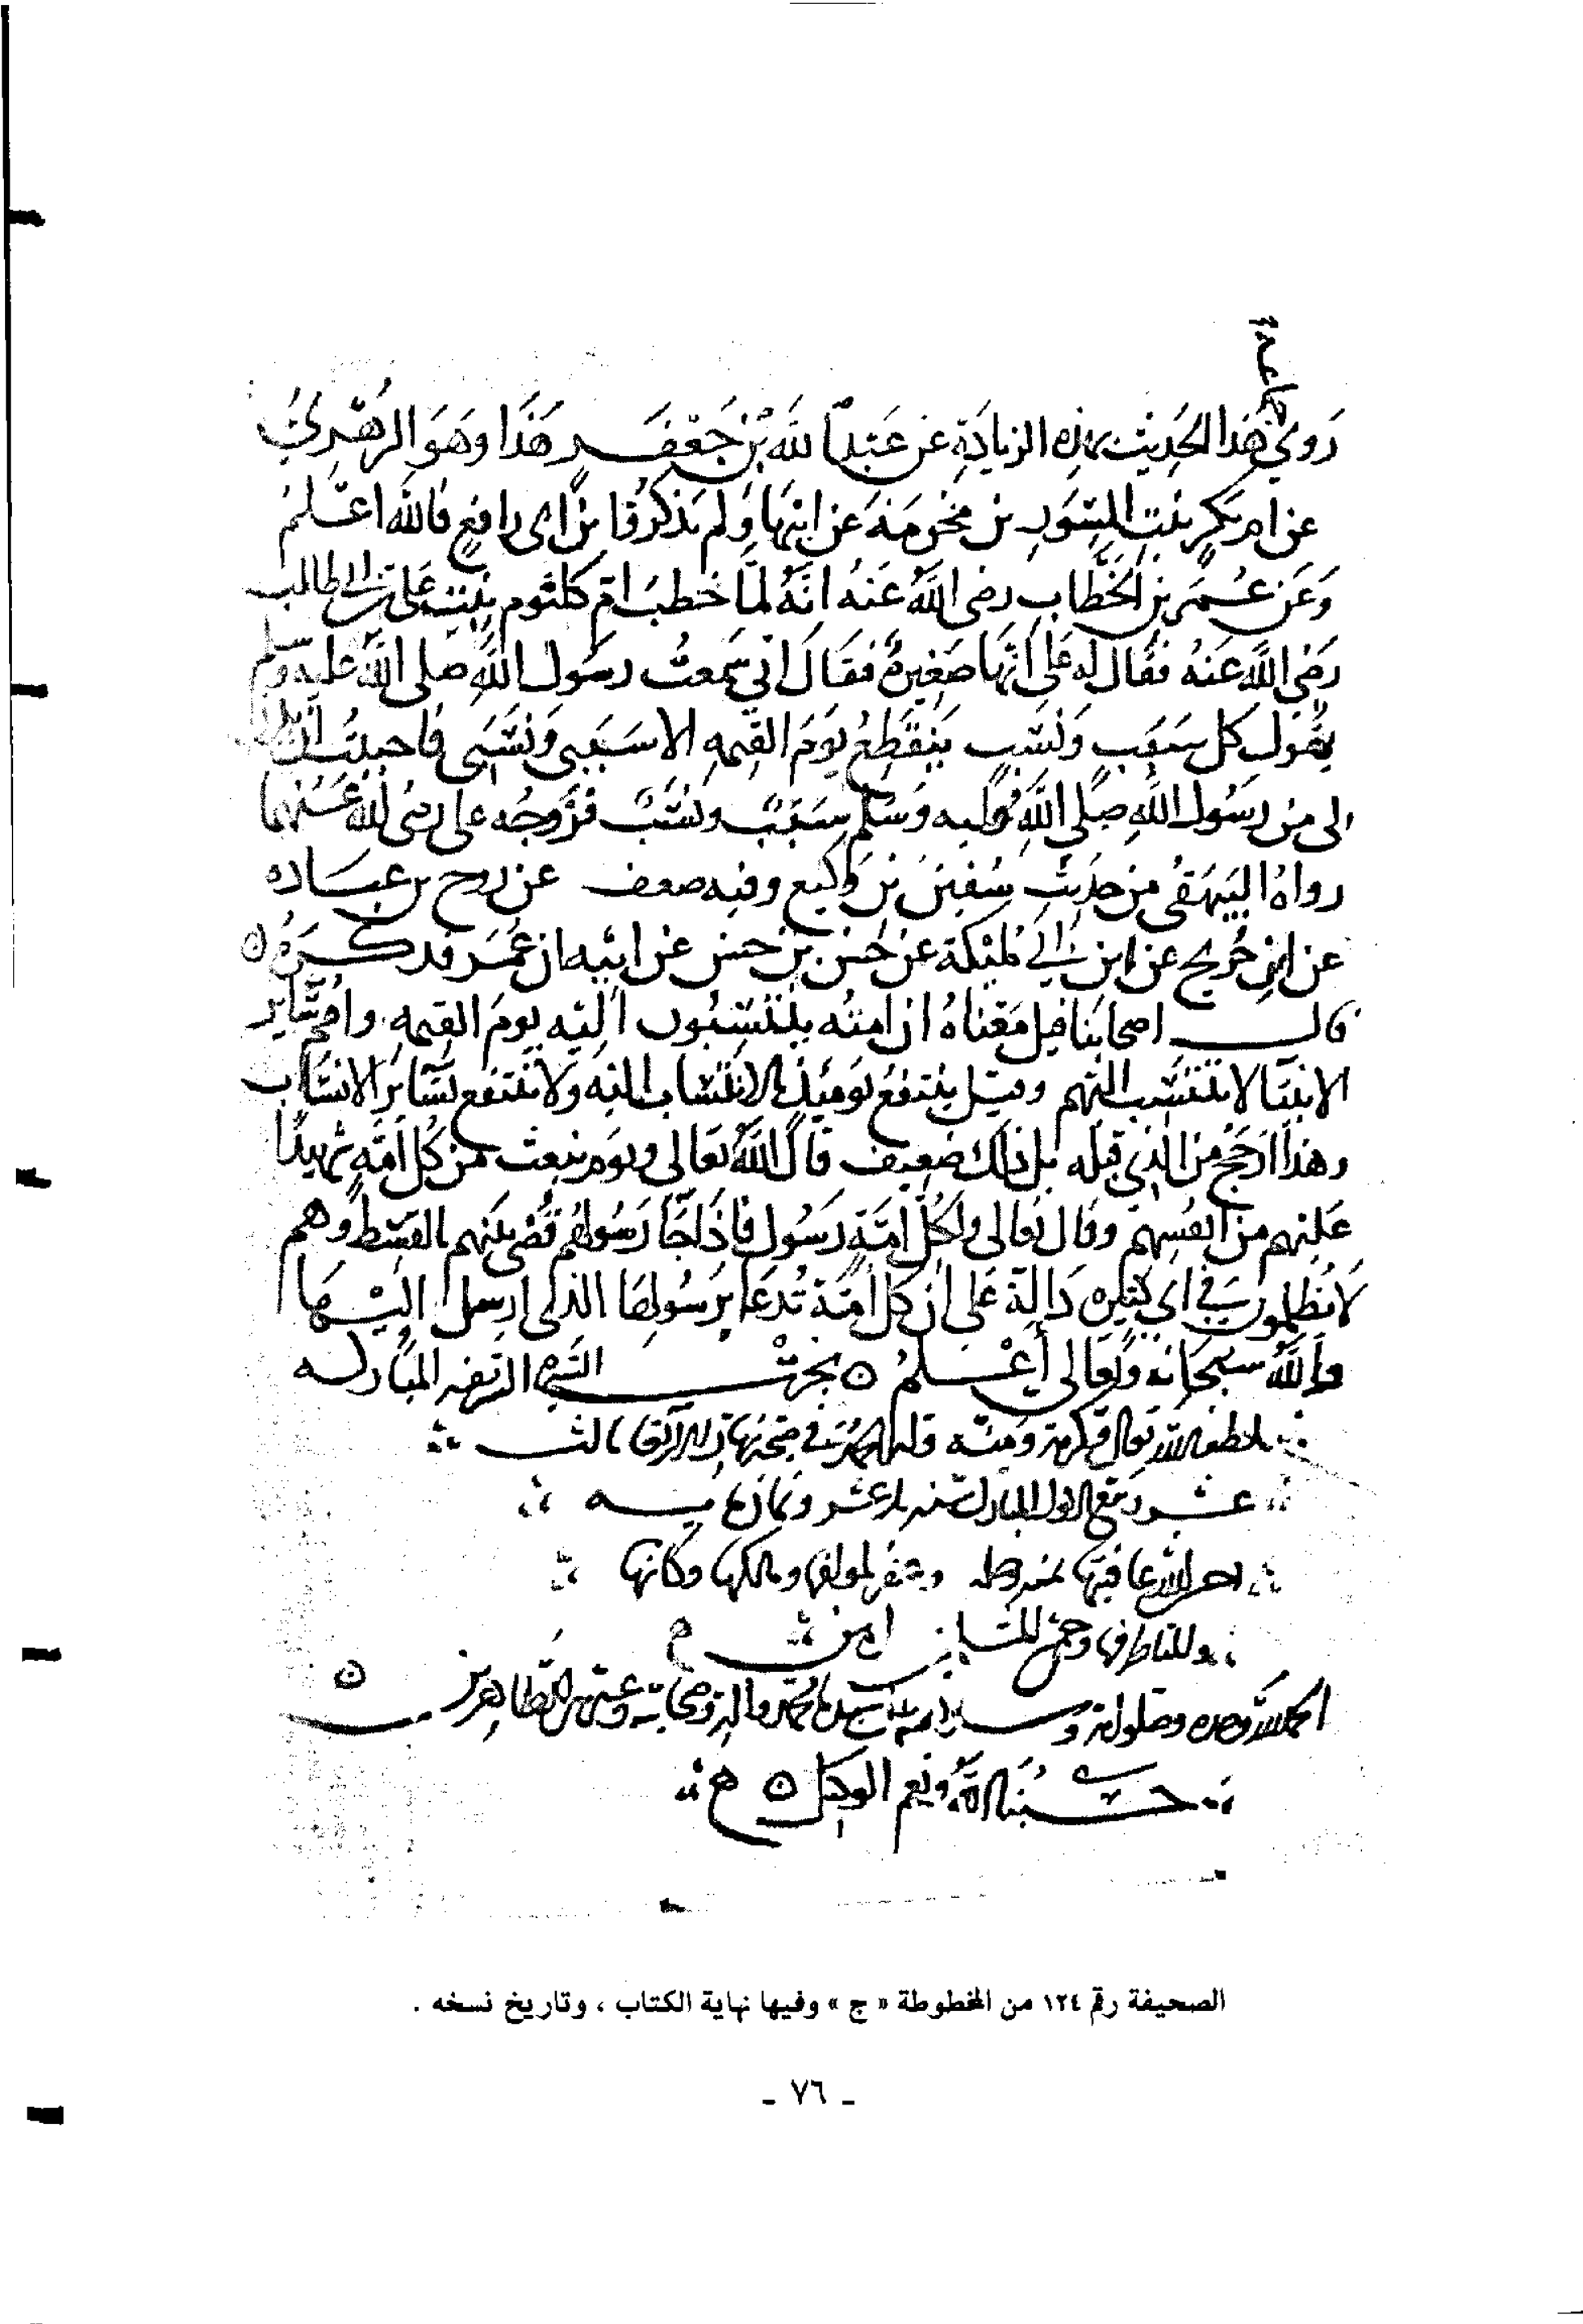 جماعة
روى هذا الحديث بهذه الزيادة عن عبد الله بن جعفر هذا وهو الزهري
عن ام بكر بنت المسور بن مخرمة عن ابيها ولم يذكروا بن ابي رافع فالله اعلم
وعن عمر بن الخطاب رضى الله عنه انه لما خطب ام كلثوم بنت على بن ابي طالب
رضى الله عنه فقال له على انها صغيرة فقال اني سمعت رسول الله صلى الله عليه وسلم
يقول كل سبب ونسب ينقطع يوم القيمه الا سببى ونسبى فاحببت ان
لى من رسول الله صلى الله عليه وسلم سبب ونسب فزوجه على رضى الله عنهما
رواه البيهقى من حديث سفين بن وكيع وفيه ضعف عن روح بن عباده
عن ابن جريج عن ابن ابي مليكة عن حسن بن حسن عن ابيه ان عمر فذكره
قال اصحابنا قيل معناه ان امته ينتسبون اليه يوم القيمه وامم سائر
الانبيا لا تنتسب اليهم وقيل ينتفع يومئذ بالانتساب اليه ولا ينتفع بسائر الانساب
وهذا ارجح من الذي قبله بل ذلك ضعيف قال الله تعالى ويوم نبعث من كل امة شهيدا
عليهم من انفسهم وقال تعالى ولكل امة رسول فاذا جا رسولهم قضى بينهم بالقسط وهم
لا يظلمون في اي كثيره دالة على ان كل امة تدعا برسولها الذى ارسل اليها
والله سبحانه وتعالى أعلم نجزت السيرة الشريفه المباركه
بلطف الله تعالى وكرمه ومنه وله الحمد في صحتها الثالث
عشر ربيع الاول المبارك سنه وثمان مايه
احسن الله عاقبتها بمنه وغفر لمولفها ومالكها وكاتبها
وللناظر فيها وجميع المسلمين امين م
الحمد لله وحده وصلواته وسلامه على سيدنا محمد واله وصحابته وعترته الطاهرين
حسبنا الله ونعم الوكيل
الصحيفة رقم ١٢٤ من المخطوطة « ج » وفيها نهاية الكتاب ، وتاريخ نسخه .
- ٧٦ -